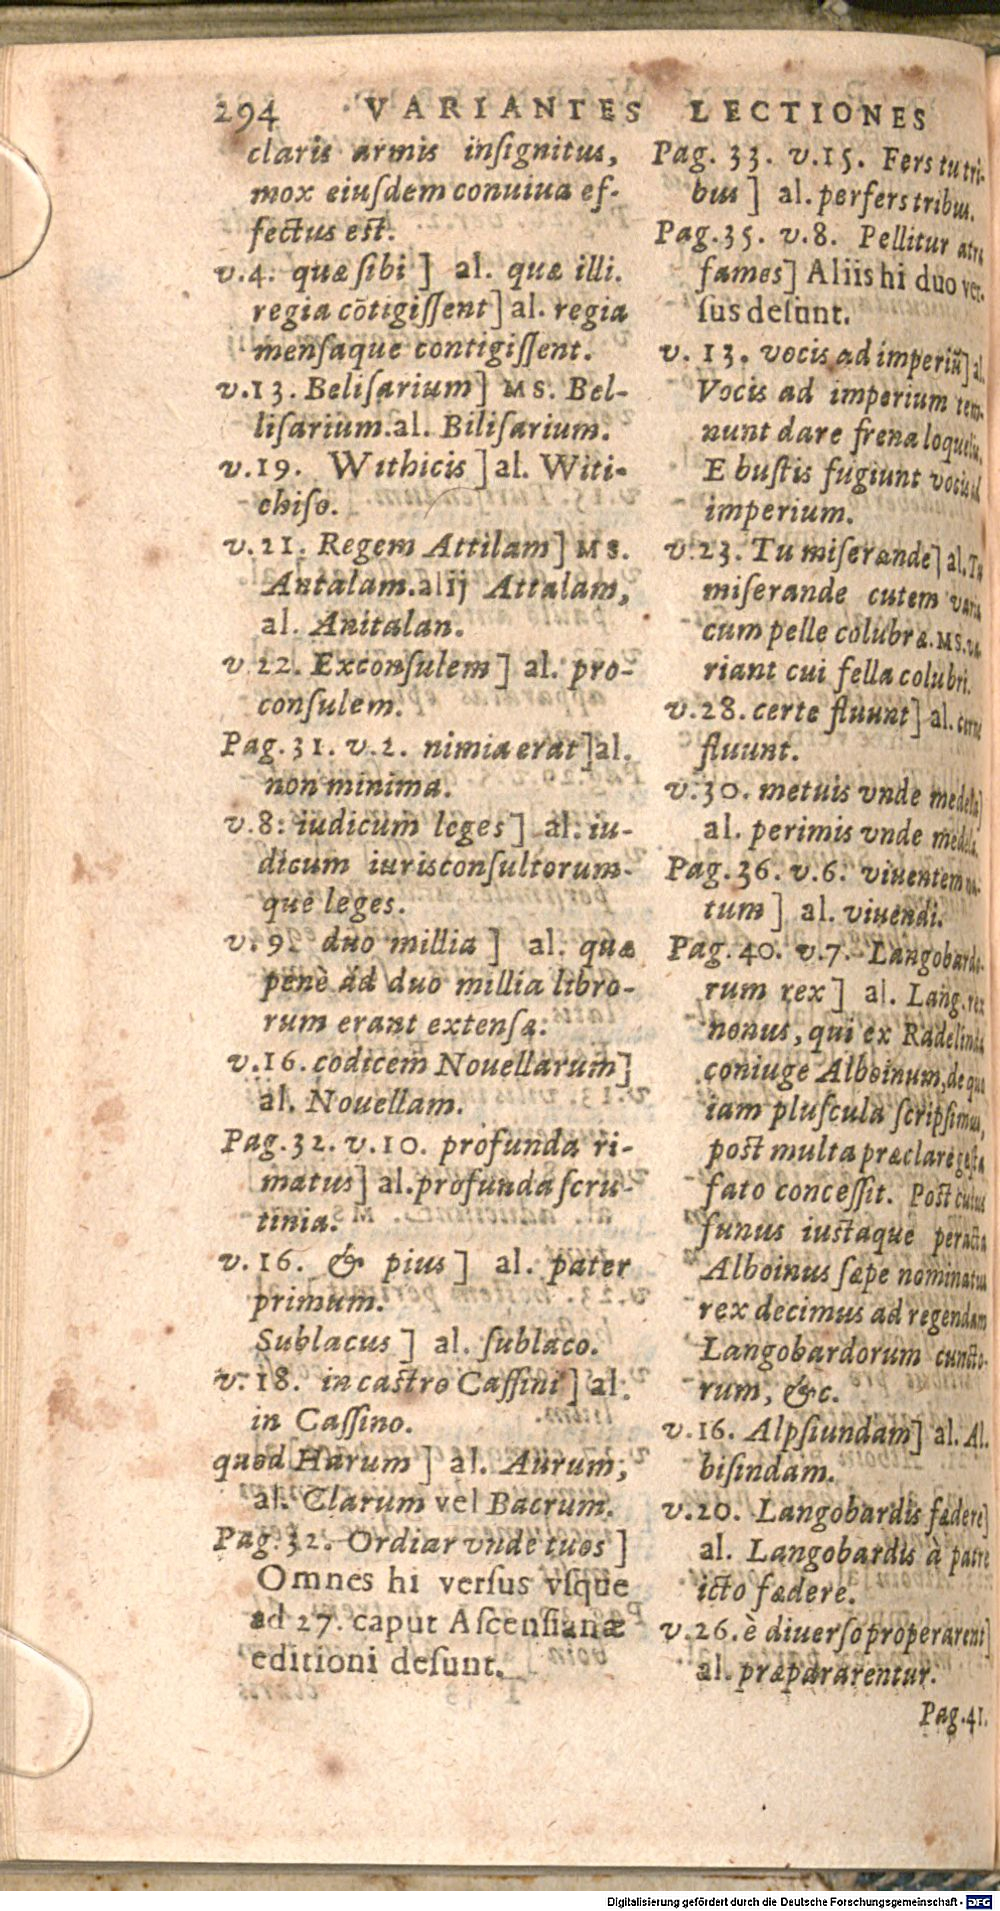 294 VARIANTES LECTIONES
claris armis inſignitus,
mox eiuſdem conuiua ef-
fectus eſt.
v.4. quæ ſibi ] al. quæ illi.
regia cõtigiſſent] al. regia
menſaque contigiſſent.
v.13. Beliſarium] MS. Bel-
liſarium. al. Biliſarium.
v.19. Withicis ] al. Witi-
chiſo.
v.21. Regem Attilam] MS.
Antalam. alij Attalam,
al. Anitalan.
v 22. Exconſulem ] al. pro-
conſulem.
Pag. 31. v.2. nimia erat ] al.
non minima.
v.8: iudicum leges ] al. iu-
dicum iurisconſultorum-
que leges.
v. 9. duo millia ] al. quæ
penè ad duo millia libro-
rum erant extenſa.
v.16. codicem Nouellarum]
al. Nouellam.
Pag. 32. v.10. profunda ri-
matus] al. profunda ſcru-
tinia.
v.16. & pius ] al. pater
primum.
Sublacus ] al. ſublaco.
v.18. in caſtro Caſſini ] al.
in Caſſino.
quod Harum ] al. Aurum,
al. Clarum vel Bacrum.
Pag. 32. Ordiar vnde tuos ]
Omnes hi verſus vſque
ad 27. caput Aſcenſianæ
editioni deſunt.
Pag. 33. v.15. Fers tu tri-
bus ] al. perfers tribus.
Pag. 35. v.8. Pellitur atra
fames] Aliis hi duo ver-
ſus deſunt.
v. 13. vocis ad imperiũ] al.
Vocis ad imperium tem-
nunt dare frena loquelis.
E buſtis fugiunt vocis ad
imperium.
v.23. Tu miſerande] al. Tu
miſerande cutem varia
cum pelle colubræ. MS. va-
riant cui fella colubri.
v.28. certe fluunt] al.
fluunt.
v.30. metuis vnde medela]
al. perimis vnde medela.
Pag. 36. v.6. viuentem na-
tum ] al. viuendi.
Pag. 40. v.7. Langobardo-
rum rex ] al. Lang. rex
nonus, qui ex Radelinda
coniuge Alboinum, de quo
iam pluſcula ſcripſimus,
poſt multa præclare geſta
fato conceſſit. Poſt cuius
funus iuſtaque peracta
Alboinus ſæpe nominatus
rex decimus ad regendam
Langobardorum cuncto-
rum, &c.
v.16. Alpſiundam] al. Al-
biſindam.
v.20. Langobardis fœdere]
al. Langobardis à patre
icto fœdere.
v.26. è diuerſo properarent]
al. præpararentur.
Pag. 41.
Digitalisierung gefördert durch die Deutsche Forschungsgemeinschaft - DFG